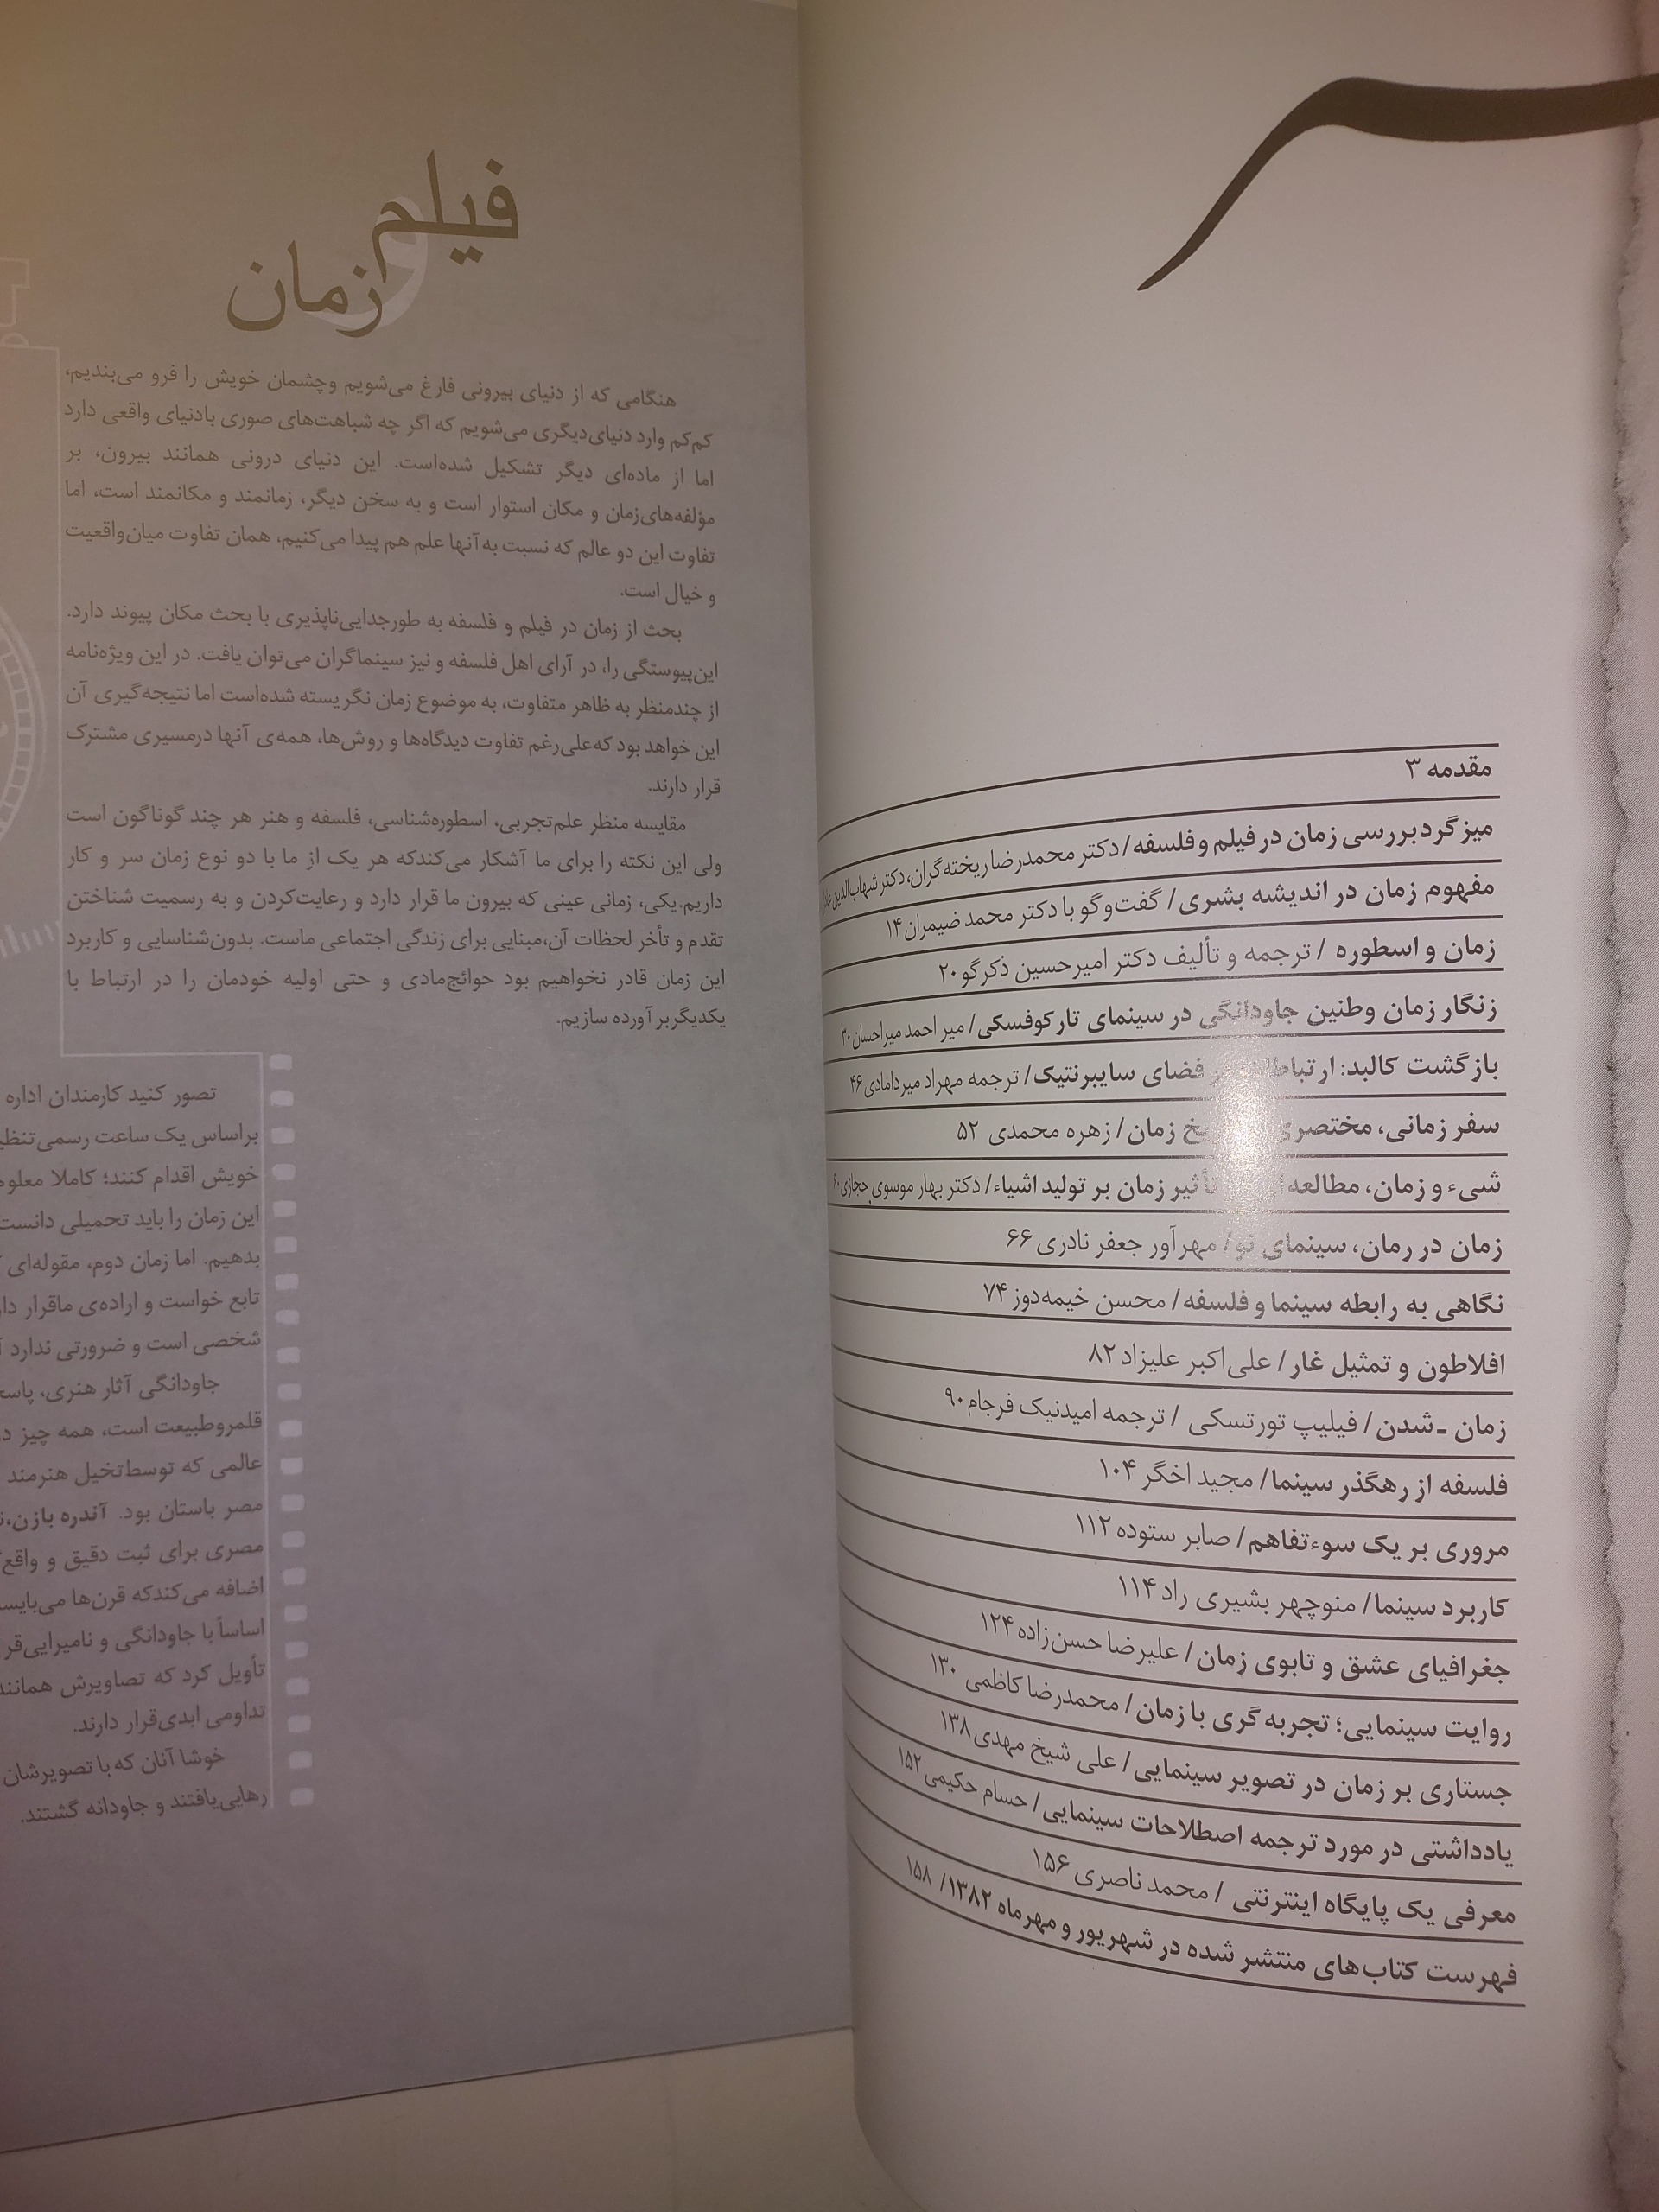 مقدمه ۳
میزگرد بررسی زمان در فیلم و فلسفه/ دکتر محمدرضا ریخته‌گران، دکتر شهاب‌الدین
مفهوم زمان در اندیشه بشری/ گفت‌وگو با دکتر محمد ضیمران ۱۴
زمان و اسطوره / ترجمه و تألیف دکتر امیرحسین ذکرگو ۲۰
زنگار زمان وطنین جاودانگی در سینمای تارکوفسکی/ میر احمد میراحسان ۳۰
بازگشت کالبد: فضای سایبرنتیک/ ترجمه مهراد میردامادی ۴۶
سفر زمانی، مختصری زمان/ زهره محمدی ۵۲
شیء و زمان، تأثیر زمان بر تولید اشیاء/ دکتر بهار موسوی حجازی ۶۰
زمان در رمان، سینمای نو/ مهرآور جعفر نادری ۶۶
نگاهی به رابطه سینما و فلسفه/ محسن خیمه‌دوز ۷۴
افلاطون و تمثیل غار/ علی‌اکبر علیزاد ۸۲
زمان ـ شدن/ فیلیپ تورتسکی / ترجمه امیدنیک فرجام ۹۰
فلسفه از رهگذر سینما/ مجید اخگر ۱۰۴
مروری بر یک سوءتفاهم/ صابر ستوده ۱۱۲
کاربرد سینما/ منوچهر بشیری راد ۱۱۴
جغرافیای عشق و تابوی زمان/ علیرضا حسن‌زاده ۱۲۴
روایت سینمایی؛ تجربه‌گری با زمان/ محمدرضا کاظمی ۱۳۰
جستاری بر زمان در تصویر سینمایی/ علی شیخ مهدی ۱۳۸
یادداشتی در مورد ترجمه اصطلاحات سینمایی/ حسام حکیمی ۱۵۲
معرفی یک پایگاه اینترنتی / محمد ناصری ۱۵۶
فهرست کتاب‌های منتشر شده در شهریور و مهرماه ۱۳۸۲/ ۱۵۸
فیلم و
زمان
هنگامی که از دنیای بیرونی فارغ می‌شویم وچشمان خویش را فرو می‌بندیم،
کم‌کم وارد دنیای‌دیگری می‌شویم که اگر چه شباهت‌های صوری بادنیای واقعی دارد
اما از ماده‌ای دیگر تشکیل شده‌است. این دنیای درونی همانند بیرون، بر
مؤلفه‌های‌زمان و مکان استوار است و به سخن دیگر، زمانمند و مکانمند است، اما
تفاوت این دو عالم که نسبت به‌آنها علم هم پیدا می‌کنیم، همان تفاوت میان‌واقعیت
و خیال است.
بحث از زمان در فیلم و فلسفه به طورجدایی‌ناپذیری با بحث مکان پیوند دارد.
این‌پیوستگی را، در آرای اهل فلسفه و نیز سینماگران می‌توان یافت. در این ویژه‌نامه
از چندمنظر به ظاهر متفاوت، به موضوع زمان نگریسته شده‌است اما نتیجه‌گیری آن
این خواهد بود که‌علی‌رغم تفاوت دیدگاه‌ها و روش‌ها، همه‌ی آنها درمسیری مشترک
قرار دارند.
مقایسه منظر علم‌تجربی، اسطوره‌شناسی، فلسفه و هنر هر چند گوناگون است
ولی این نکته را برای ما آشکار می‌کندکه هر یک از ما با دو نوع زمان سر و کار
داریم.یکی، زمانی عینی که بیرون ما قرار دارد و رعایت‌کردن و به رسمیت شناختن
تقدم و تأخر لحظات آن،مبنایی برای زندگی اجتماعی ماست. بدون‌شناسایی و کاربرد
این زمان قادر نخواهیم بود حوائج‌مادی و حتی اولیه خودمان را در ارتباط با
یکدیگربرآورده سازیم.
تصور کنید کارمندان اداره
براساس یک ساعت رسمی
خویش اقدام کنند؛ کاملا
این زمان را باید تحمیلی دانست
بدهیم. اما زمان دوم، مقوله‌ای
تابع خواست و اراده‌ی ماقرار
شخصی است و ضرورتی ندارد
جاودانگی آثار هنری،
قلمروطبیعت است، همه چیز
عالمی که توسط‌تخیل هنرمند
مصر باستان بود. آندره بازن،
مصری برای ثبت دقیق و
اضافه می‌کندکه قرن‌ها
اساساً با جاودانگی و
تأویل کرد که تصاویرش
تداومی ابدی‌قرار دارند.
خوشا آنان که با تصویرشان
رهایی‌یافتند و جاودانه گشتند.